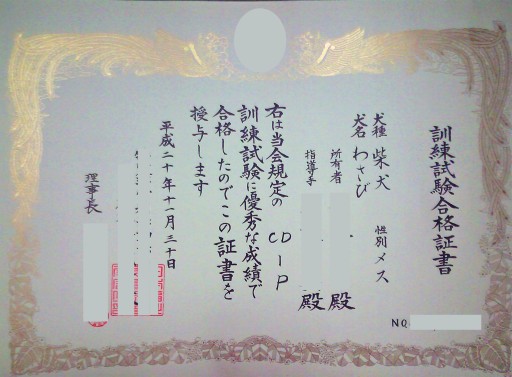 訓練試験合格証書
犬種 柴犬 性別 メス
犬名 わさび
所有者 殿
指導手 殿
右は当会規定の CD-P
訓練試験に優秀な成績で
合格したのでこの証書を
授与します
平成二十年十一月三十日
理事長
NO